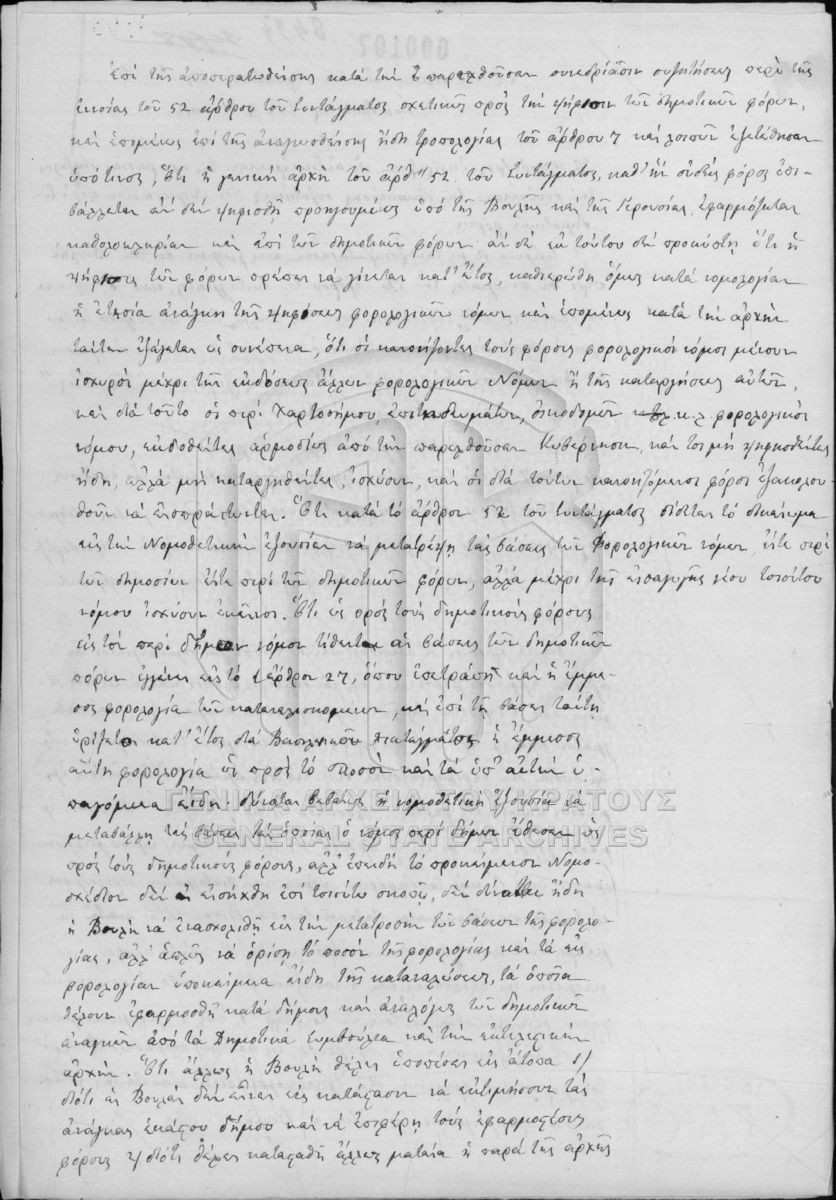 000107
Ἐπὶ τῆς ἀποπερατωθείσης κατὰ τὴν παρελθοῦσαν συνεδρίασιν συζητήσεως περὶ τῆς
ἐννοίας τοῦ 52 ἄρθρου τοῦ Συντάγματος σχετικῶς πρὸς τὴν ψήφισιν τῶν δημοτικῶν φόρων,
καὶ ἑπομένως ἐπὶ τῆς ἀναγνωσθείσης ἤδη τροπολογίας τοῦ ἄρθρου 7 καὶ λοιπῶν ἐξετέθησαν
ὑπό τινος, Ὅτι ἡ γενικὴ ἀρχὴ τοῦ ἄρθ 52 τοῦ Συντάγματος, καθ' ἣν οὐδεὶς φόρος ἐπι-
βάλλεται ἂν δὲν ψηφισθῇ προηγουμένως ὑπὸ τῆς Βουλῆς καὶ τῆς Γερουσίας, ἐφαρμόζεται
καθ' ὁλοκληρίαν καὶ ἐπὶ τῶν δημοτικῶν φόρων· ἂν δὲ ἐκ τούτου δὲν προκύπτῃ ὅτι ἡ
ψήφισις τῶν φόρων πρέπει νὰ γίνεται κατ' ἔτος, καθιερώθη ὅμως κατὰ νομολογίαν
ἡ ἐτησία ἀνάγκη τῆς ψηφίσεως φορολογικῶν νόμων καὶ ἑπομένως κατὰ τὴν ἀρχὴν
ταύτην ἐξάγεται ὡς συνέπεια, ὅτι οἱ κανονίζοντες τοὺς φόρους φορολογικοὶ νόμοι μένουν
ἰσχυροὶ μέχρι τῆς ἐκδόσεως ἄλλων φορολογικῶν Νόμων ἢ τῆς καταργήσεως αὐτῶν,
καὶ διὰ τοῦτο οἱ περὶ Χαρτοσήμου, ἐπιτηδευμάτων, οἰκοδομῶν κ.λ. φορολογικοὶ
νόμοι, ἐκδοθέντες ἁρμοδίως ἀπὸ τὴν παρελθοῦσαν Κυβέρνησιν, καίτοι μὴ ψηφισθέντες
ἤδη, ἀλλὰ μὴ καταργηθέντες, ἰσχύουν, καὶ οἱ διὰ τούτων κανονιζόμενοι φόροι ἐξακολου-
θοῦν νὰ εἰσπράττωνται. Ὅτι κατὰ τὸ ἄρθρον 52 τοῦ Συντάγματος δίδεται τὸ δικαίωμα
εἰς τὴν Νομοθετικὴν ἐξουσίαν νὰ μετατρέψῃ τὰς βάσεις τῶν Φορολογικῶν νόμων, εἴτε περὶ
τῶν δημοσίων εἴτε περὶ τῶν δημοτικῶν φόρων, ἀλλὰ μέχρι τῆς εἰσαγωγῆς νέου τοιούτου
νόμου ἰσχύουν ἐκεῖνοι. Ὅτι ὡς πρὸς τοὺς δημοτικοὺς φόρους
εἰς τὸν περὶ δήμων νόμον τίθενται αἱ βάσεις τῶν δημοτικῶν
πόρων εἰς τὸ ἄρθρον 27, ὅπου ἐπετράπη καὶ ἡ ἔμμε-
σος φορολογία τῶν καταναλισκομένων, καὶ ἐπὶ τῇ βάσει ταύτῃ
ὁρίζεται κατ' ἔτος διὰ Βασιλικοῦ διατάγματος ἡ ἔμμεσος
αὕτη φορολογία ὡς πρὸς τὸ ποσὸν καὶ τὰ ὑπ' αὐτὴν ὑ-
παγόμενα εἴδη. δύναται βεβαίως ἡ νομοθετικὴ ἐξουσία νὰ
μεταβάλῃ τὰς βάσεις τὰς ὁποίας ὁ νόμος περὶ δήμων ἔθεσεν ὡς
πρὸς τοὺς δημοτικοὺς φόρους, ἀλλ' ἐπειδὴ τὸ προκείμενον Νομο-
σχέδιον δὲν εἰσήχθη ἐπὶ τοιούτῳ σκοπῷ, δὲν δύναται ἤδη
ἡ Βουλὴ νὰ ἐνασχοληθῇ εἰς τὴν μετατροπὴν τῶν βάσεων τῆς φορολο-
γίας, ἀλλ' ἁπλῶς νὰ ὁρίσῃ τὸ ποσὸν τῆς φορολογίας καὶ τὰ εἰς
φορολογίαν ὑποκείμενα εἴδη τῆς καταναλώσεως, τὰ ὁποῖα
θέλουν ἐφαρμοσθῆ κατὰ δήμους καὶ ἀναλόγως τῶν δημοτικῶν
ἀναγκῶν ἀπὸ τὰ Δημοτικὰ Συμβούλια καὶ τὴν ἐκτελεστικὴν
ἀρχήν. Ὅτι ἄλλως ἡ Βουλὴ θέλει ὑποπέσει εἰς ἄτοπα 1)
διότι αἱ Βουλαὶ δὲν εἶναι εἰς κατάστασιν νὰ ἐκτιμήσουν τὰς
ἀνάγκας ἑκάστου δήμου καὶ νὰ ἐπιφέρῃ τοὺς ἐφαρμοστέους
φόρους διότι θέλει κατασταθῆ ἄλλως ματαία ἡ παρὰ τῆς ἀρχῆς
ΓΕΝΙΚΑ ΑΡΧΕΙΑ ΤΟΥ ΚΡΑΤΟΥΣ
GENERAL STATE ARCHIVES